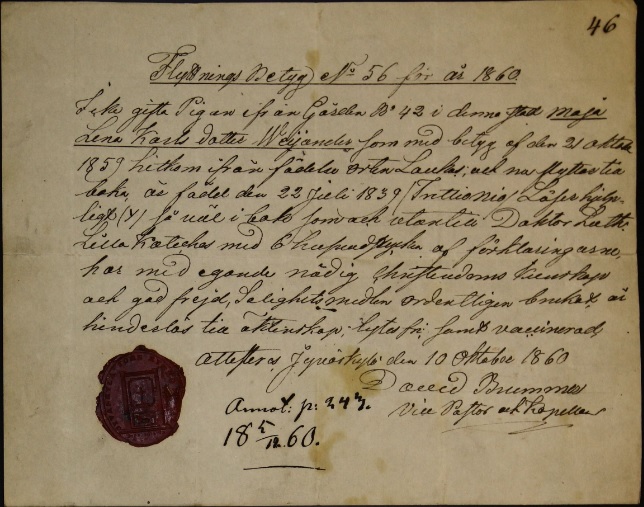 46
Flyttnings Betyg No 56 för år 1860
Icke gifta Pigan ifrån Gården No 42 i denna stad Maja
Lena Karls dotter Weijander som med betyg af den 21 oktob
1859 hitkom ifrån födelse orten Laukas, och nu flyttar till
baka, är född den 22 Juli 1839 (Trettionio) Läser hjelp-
ligt (x) så väl i bok som och utantill Doktor Luth.
Lilla Kateches med 6 hufvudstycken af förklaringarne,
har med egande nödig christendoms kunskap
och god frejd, Salighetsmedlen ordentligen brukat, är
hinderlös till äktenskap, lytesfri samt vaccinerad,
attesteras Jyväskylä den 10 Oktober 1860
David Brummer
Vice Pastor och Kapellan
Annot: p: 243.
18 5/12 60.